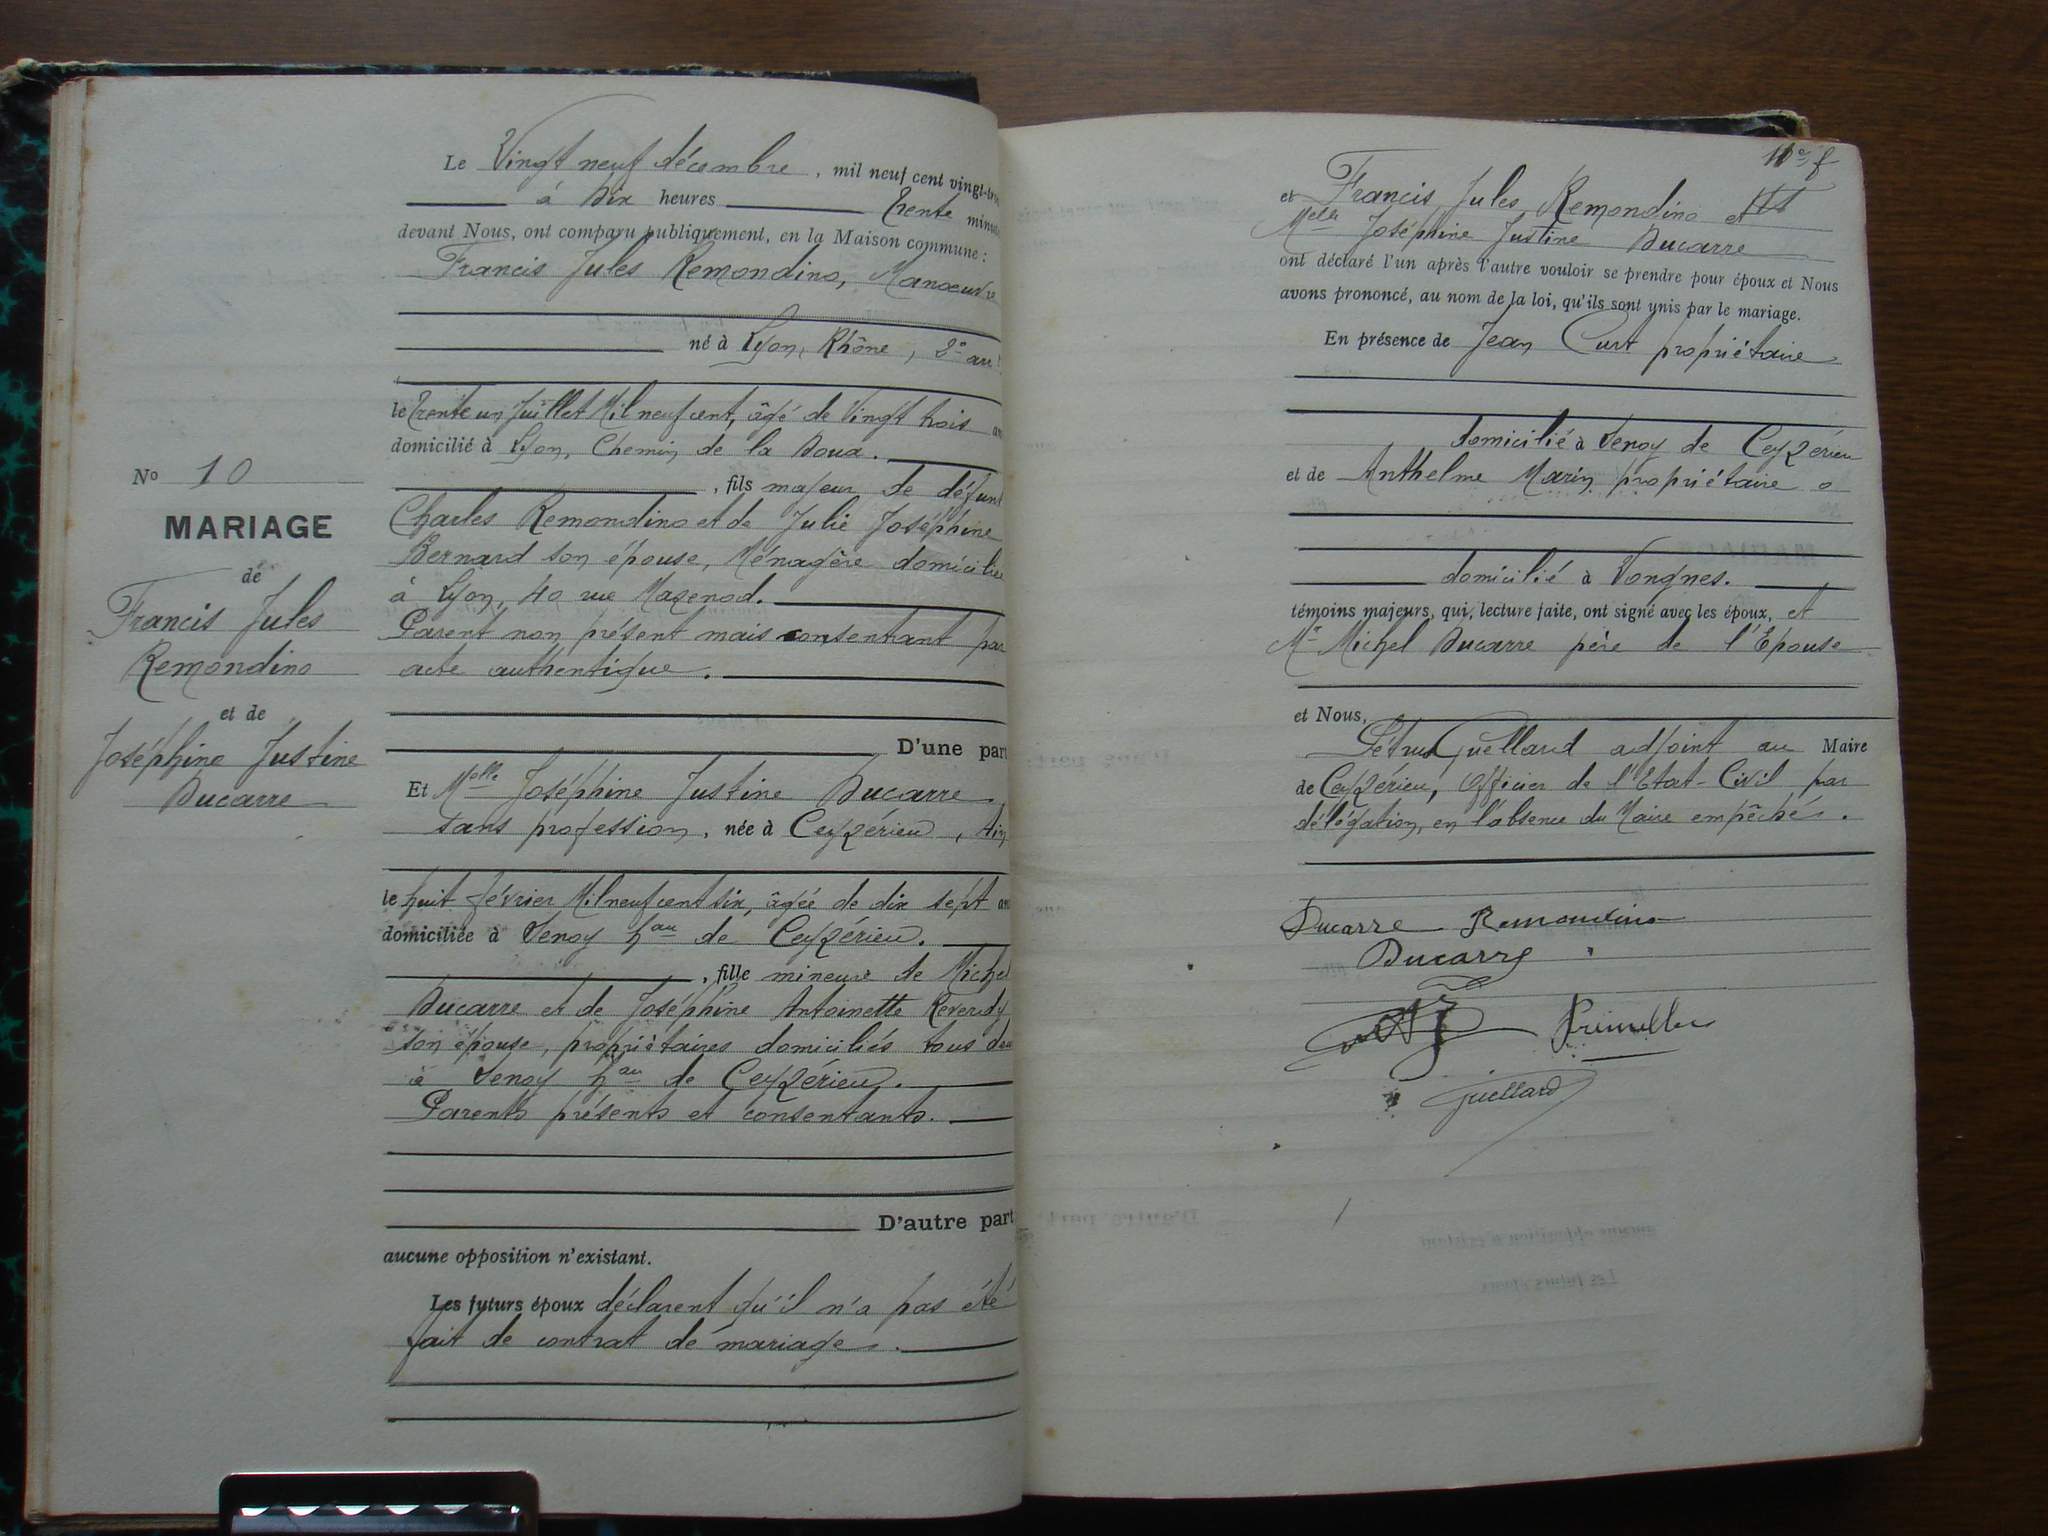 Le Vingt neuf décembre, mil neuf cent vingt-trois
à Dix heures Trente minutes
devant Nous, ont comparu publiquement, en la Maison commune :
Francis Jules Remondino, Manœuvre
né à Lyon, Rhône, 2e arrt
le Trente un Juillet Mil neuf cent, âgé de Vingt trois an
domicilié à Lyon, Chemin de la Doua.
, fils majeur de défunt
Charles Remondino et de Julie Joséphine
Bernard son épouse, Ménagère domiciliée
à Lyon, 40 rue Mazenod.
Parent non présent mais consentant par
acte authentique.
D'une part
Et Melle Joséphine Justine Ducarre
sans profession, née à Ceyzérieu, Ain
le huit février Mil neuf cent six, âgée de dix sept an
domiciliée à Senoy hau de Ceyzérieu.
, fille mineure de Michel
Ducarre et de Joséphine Antoinette Reverdy
son épouse, propriétaires domiciliés tous deux
à Senoy hau de Ceyzérieu.
Parents présents et consentants.
D'autre part
aucune opposition n'existant.
Les futurs époux déclarent qu'il n'a pas été
fait de contrat de mariage.
No 10
MARIAGE
de
Francis Jules
Remondino
et de
Joséphine Justine
Ducarre
et Francis Jules Remondino et
Melle Joséphine Justine Ducarre
ont déclaré l'un après l'autre vouloir se prendre pour époux et Nous
avons prononcé, au nom de la loi, qu'ils sont unis par le mariage.
En présence de Jean Curt propriétaire
domicilié à Senoy de Ceyzérieu
et de Anthelme Marin propriétaire
domicilié à Vongnes.
témoins majeurs, qui, lecture faite, ont signé avec les époux, et
Mr Michel Ducarre père de l'Epouse
et Nous,
Pétrus Guellard adjoint au Maire
de Ceyzérieu, Officier de l'Etat-Civil par
délégation, en l'absence du Maire empêché.
Ducarre Remondino
Ducarre
Guellard